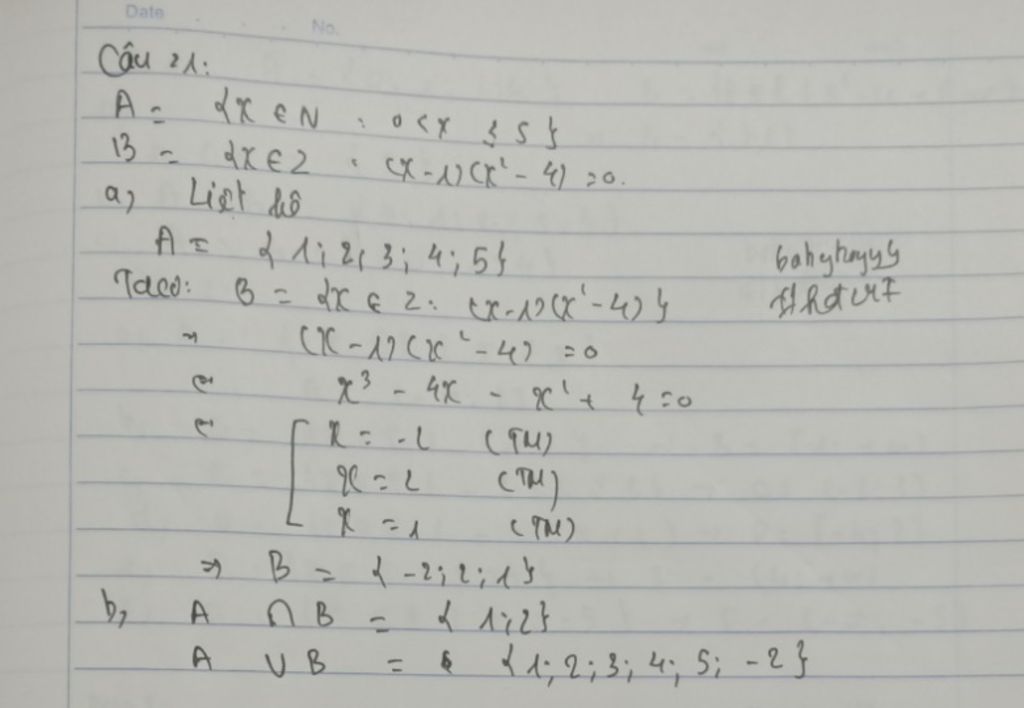 Date No.
Câu 21:
A = {x ∈ N : 0 < x ≤ 5}
B = {x ∈ Z : (x-1)(x²-4) = 0.
a, Liệt kê
A = {1; 2; 3; 4; 5}
Ta có: B = {x ∈ Z : (x-1)(x²-4)}
⇒ (x-1)(x²-4) = 0
⇔ x³ - 4x - x² + 4 = 0
⇔ [ x = -2 (TM)
x = 2 (TM)
x = 1 (TM)
⇒ B = {-2; 2; 1}
b, A ∩ B = {1; 2}
A ∪ B = {1; 2; 3; 4; 5; -2}